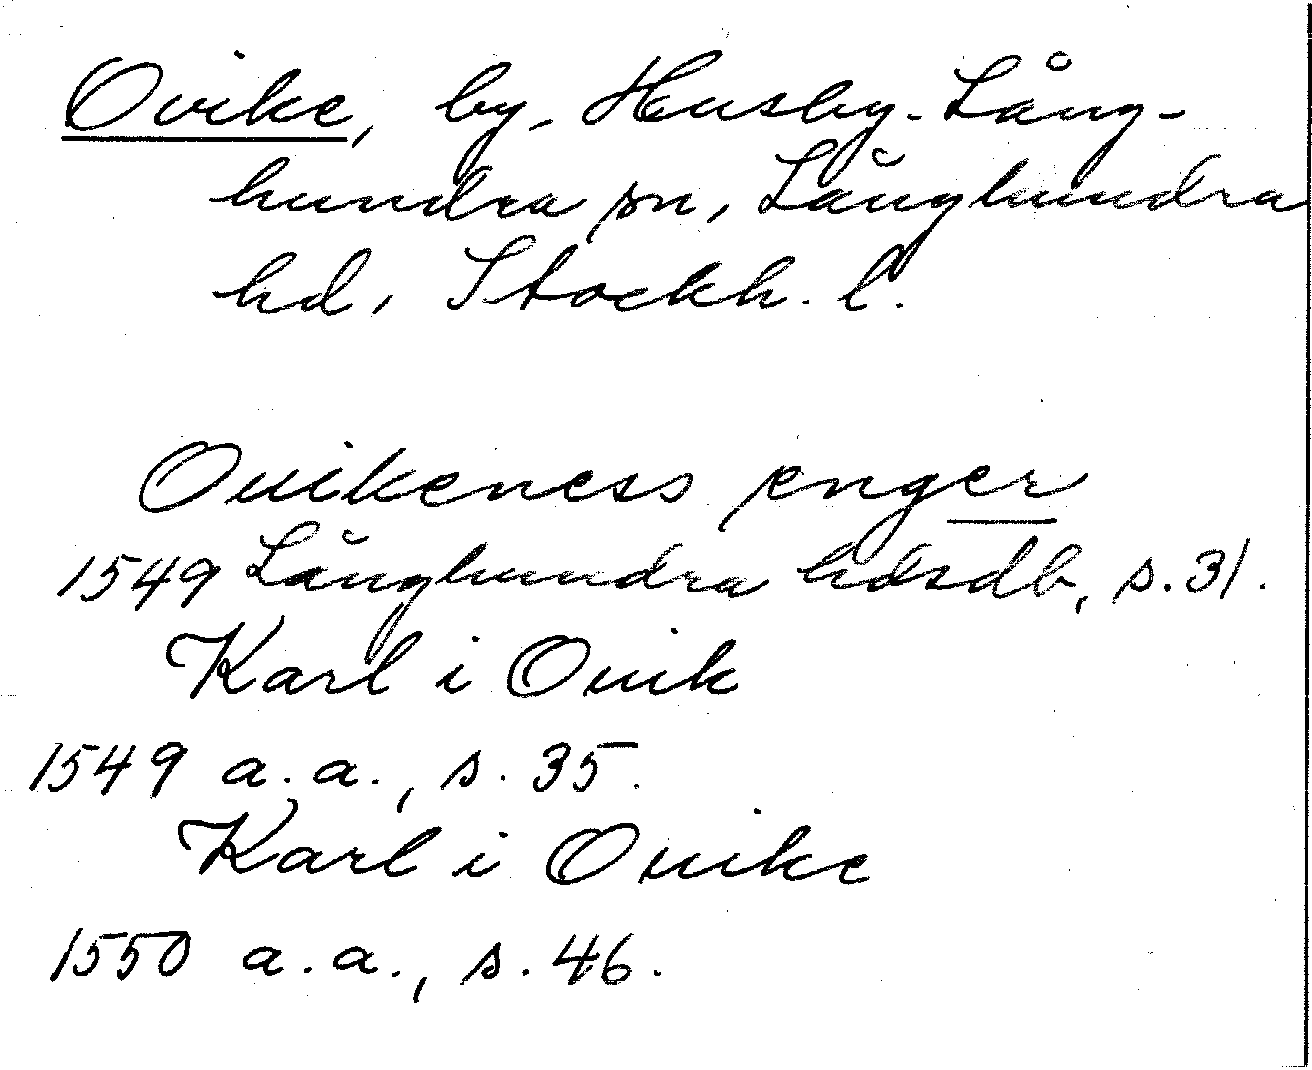 Ovike, by, Husby-Lång-
hundra sn, Långhundra
hd, Stockh. l.
Ouikeness enger
1549 Långhundra hdsdb, s. 31.
Karl i Ouik
1549 a.a., s. 35.
Karl i Ouike
1550 a.a., s. 46.